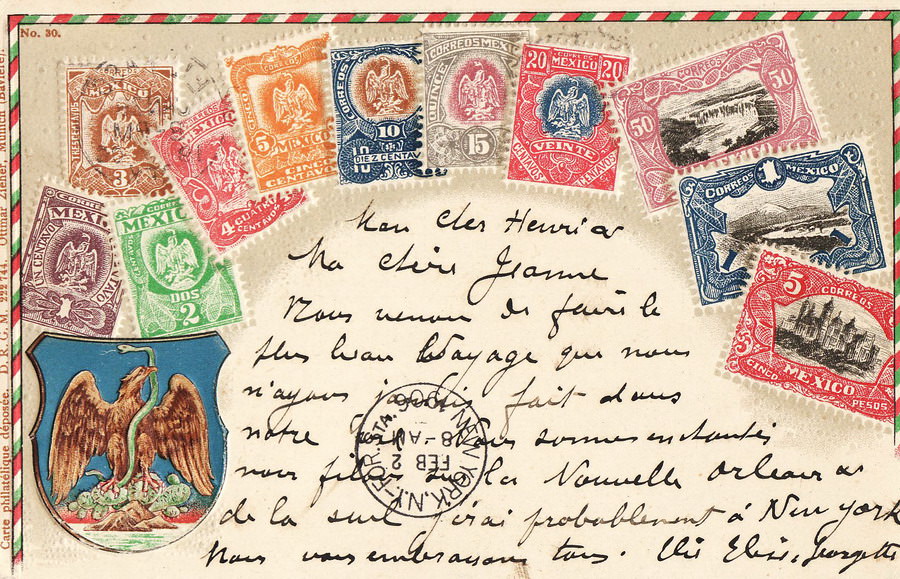 No. 30.
Carte philatélique déposée. D. R. G. M. 222744. Ottmar Zieher, Munich (Bavière).
CORREOS
MEXICO
TRES CENTAVOS
3
MEXICO
4 CUATRO
CENTAVOS
CORREOS
5 MEXICO
CINCO
CENTAVOS
CORREOS
MEXICO
10
DIEZ CENTAVOS
CORREOS MEXICO
QUINCE
15
20 MEXICO 20
VEINTE
CENTAVOS
CORREOS
50
50
CORREOS 1 MEXICO
1 1
5 CORREOS
MEXICO
CINCO PESOS
MEXICO
UN CENTAVO
1
MEXICO
DOS
2
Mon cher Henri
Ma chère Jeanne
Nous venons de faire le
plus beau voyage que nous
n'ayons jamais fait dans
notre nous sommes enchantés
nous sur la Nouvelle Orleans
de la j'irai probablement à New York
Nous vous embrassons tous. Georgette
NEW YORK, N.Y.
FOR. STA.
FEB 2
8-AM
1906